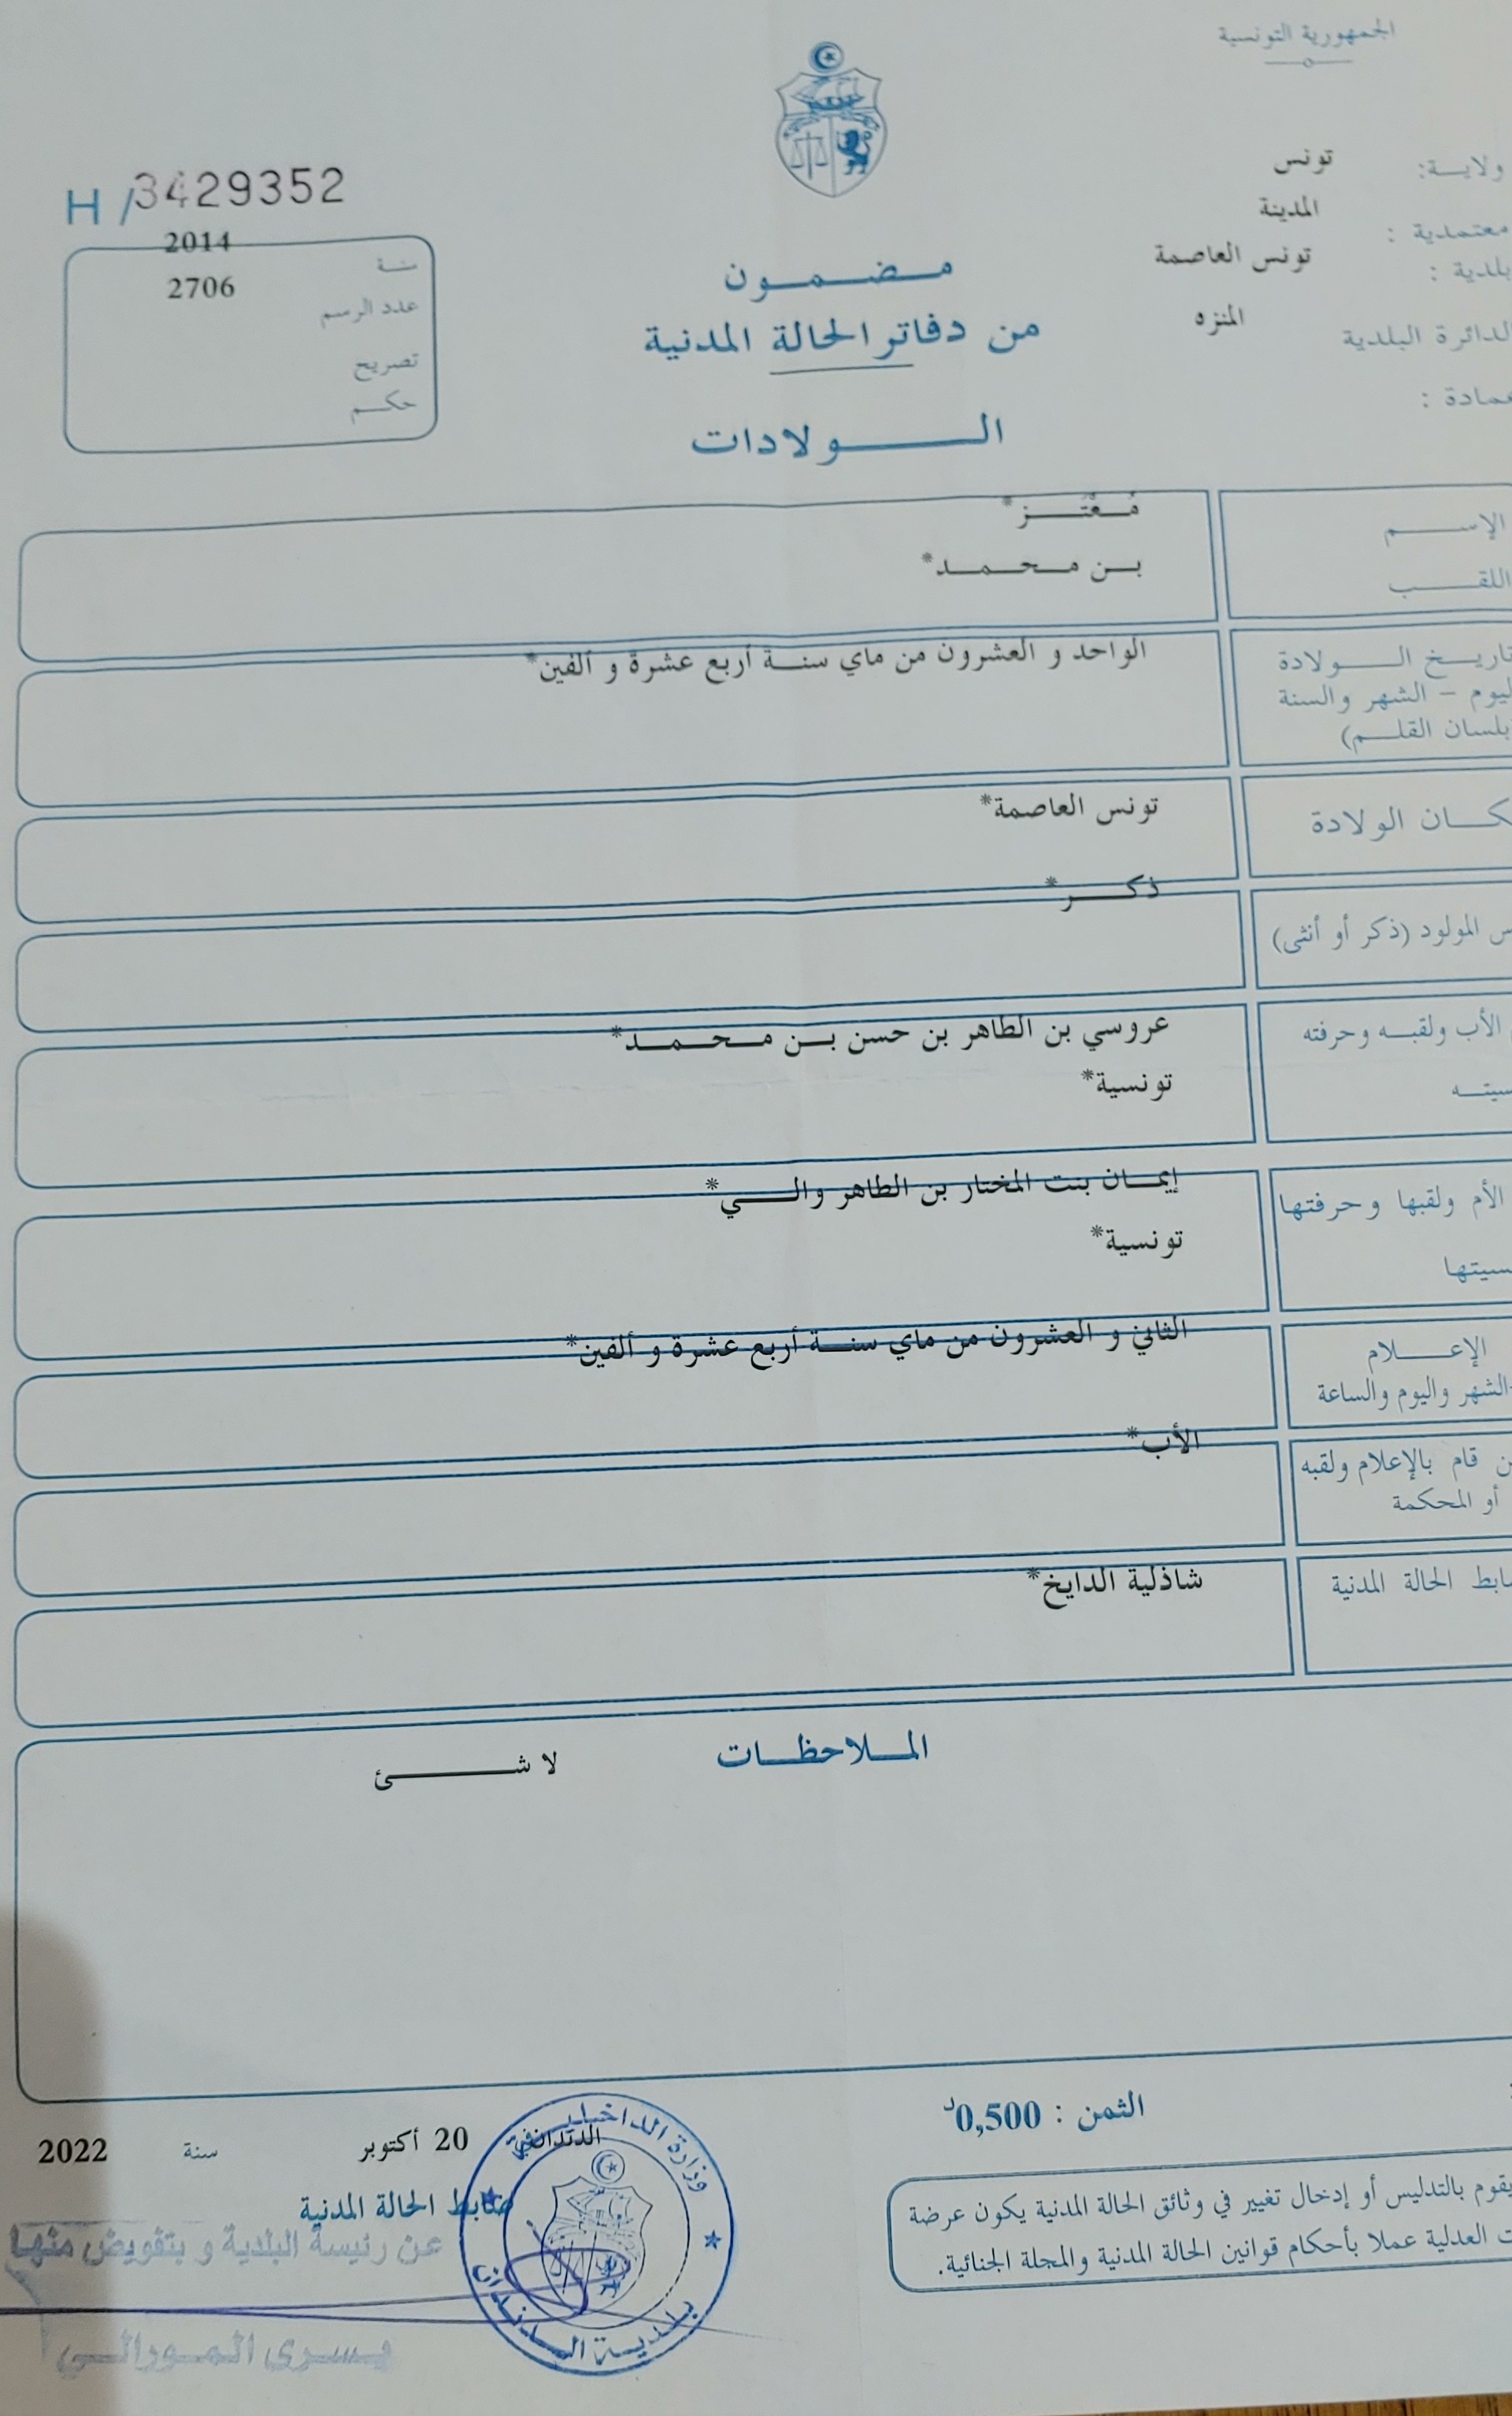 الجمهورية التونسية
ولاية: تونس
معتمدية : المدينة
بلدية : تونس العاصمة
الدائرة البلدية المنزه
عمادة :
H /3429352
سنة 2014
عدد الرسم 2706
تصريح
حكم
مضمون
من دفاتر الحالة المدنية
الولادات
الإسم مُعْتَز*
اللقب بن محمد*
تاريخ الولادة الواحد و العشرون من ماي سنة أربع عشرة و ألفين*
اليوم – الشهر والسنة
بلسان القلم)
كان الولادة تونس العاصمة*
س المولود (ذكر أو أنثى) ذكر*
الأب ولقبه وحرفته عروسي بن الطاهر بن حسن بن محمد*
سيته تونسية*
الأم ولقبها وحرفتها إيمان بنت المختار بن الطاهر والي*
سيتها تونسية*
الإعلام الثاني و العشرون من ماي سنة أربع عشرة و ألفين*
الشهر واليوم والساعة
ن قام بالإعلام ولقبه الأب*
أو المحكمة
ابط الحالة المدنية شاذلية الدايخ*
الملاحظات
لا شئ
الثمن : 0,500د
الدندان في 20 أكتوبر سنة 2022
ضابط الحالة المدنية
عن رئيسة البلدية و بتفويض منها
يسرى المورالي
وزارة الداخلية
بلدية الدندان
يقوم بالتدليس أو إدخال تغيير في وثائق الحالة المدنية يكون عرضة
ت العدلية عملا بأحكام قوانين الحالة المدنية والمجلة الجنائية.